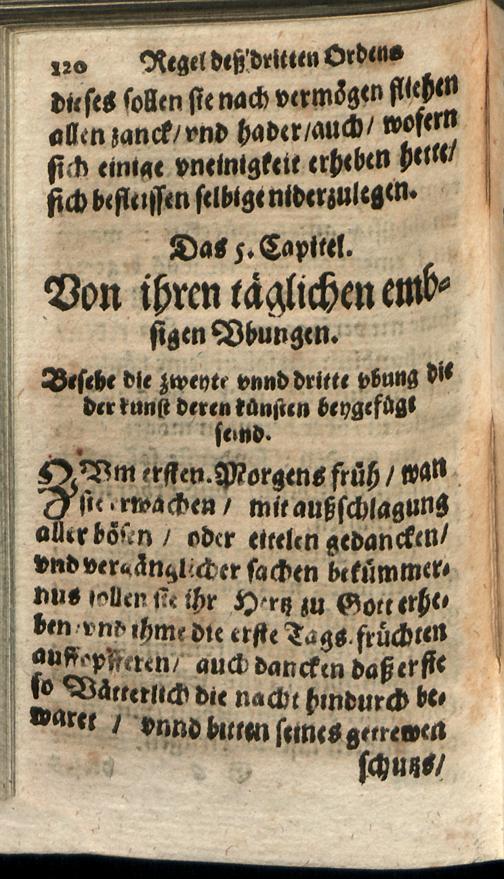 120 Regel deß dritten Ordens
dieses sollen sie nach vermögen fliehen
allen zanck/ vnd hader/auch/ wofern
sich einige vneinigkeit erheben hette/
sich befleissen selbige niderzulegen.
Das 5. Capitel.
Von ihren täglichen emb-
sigen Vbungen.
Besehe die zweyte vnnd dritte vbung die
der kunst deren künsten beygefügt
seind.
ZVm ersten. Morgens früh / wan
sie erwachen / mit außschlagung
aller bösen / oder eitelen gedancken/
vnd vergänglicher sachen bekümmer-
nus sollen sie ihr Hertz zu Gott erhe-
ben/ vnd ihme die erste Tags. früchten
auffopfferen/ auch dancken daß er sie
so Vätterlich die nacht hindurch be-
waret / vnnd bitten seines getrewen
schutzs/